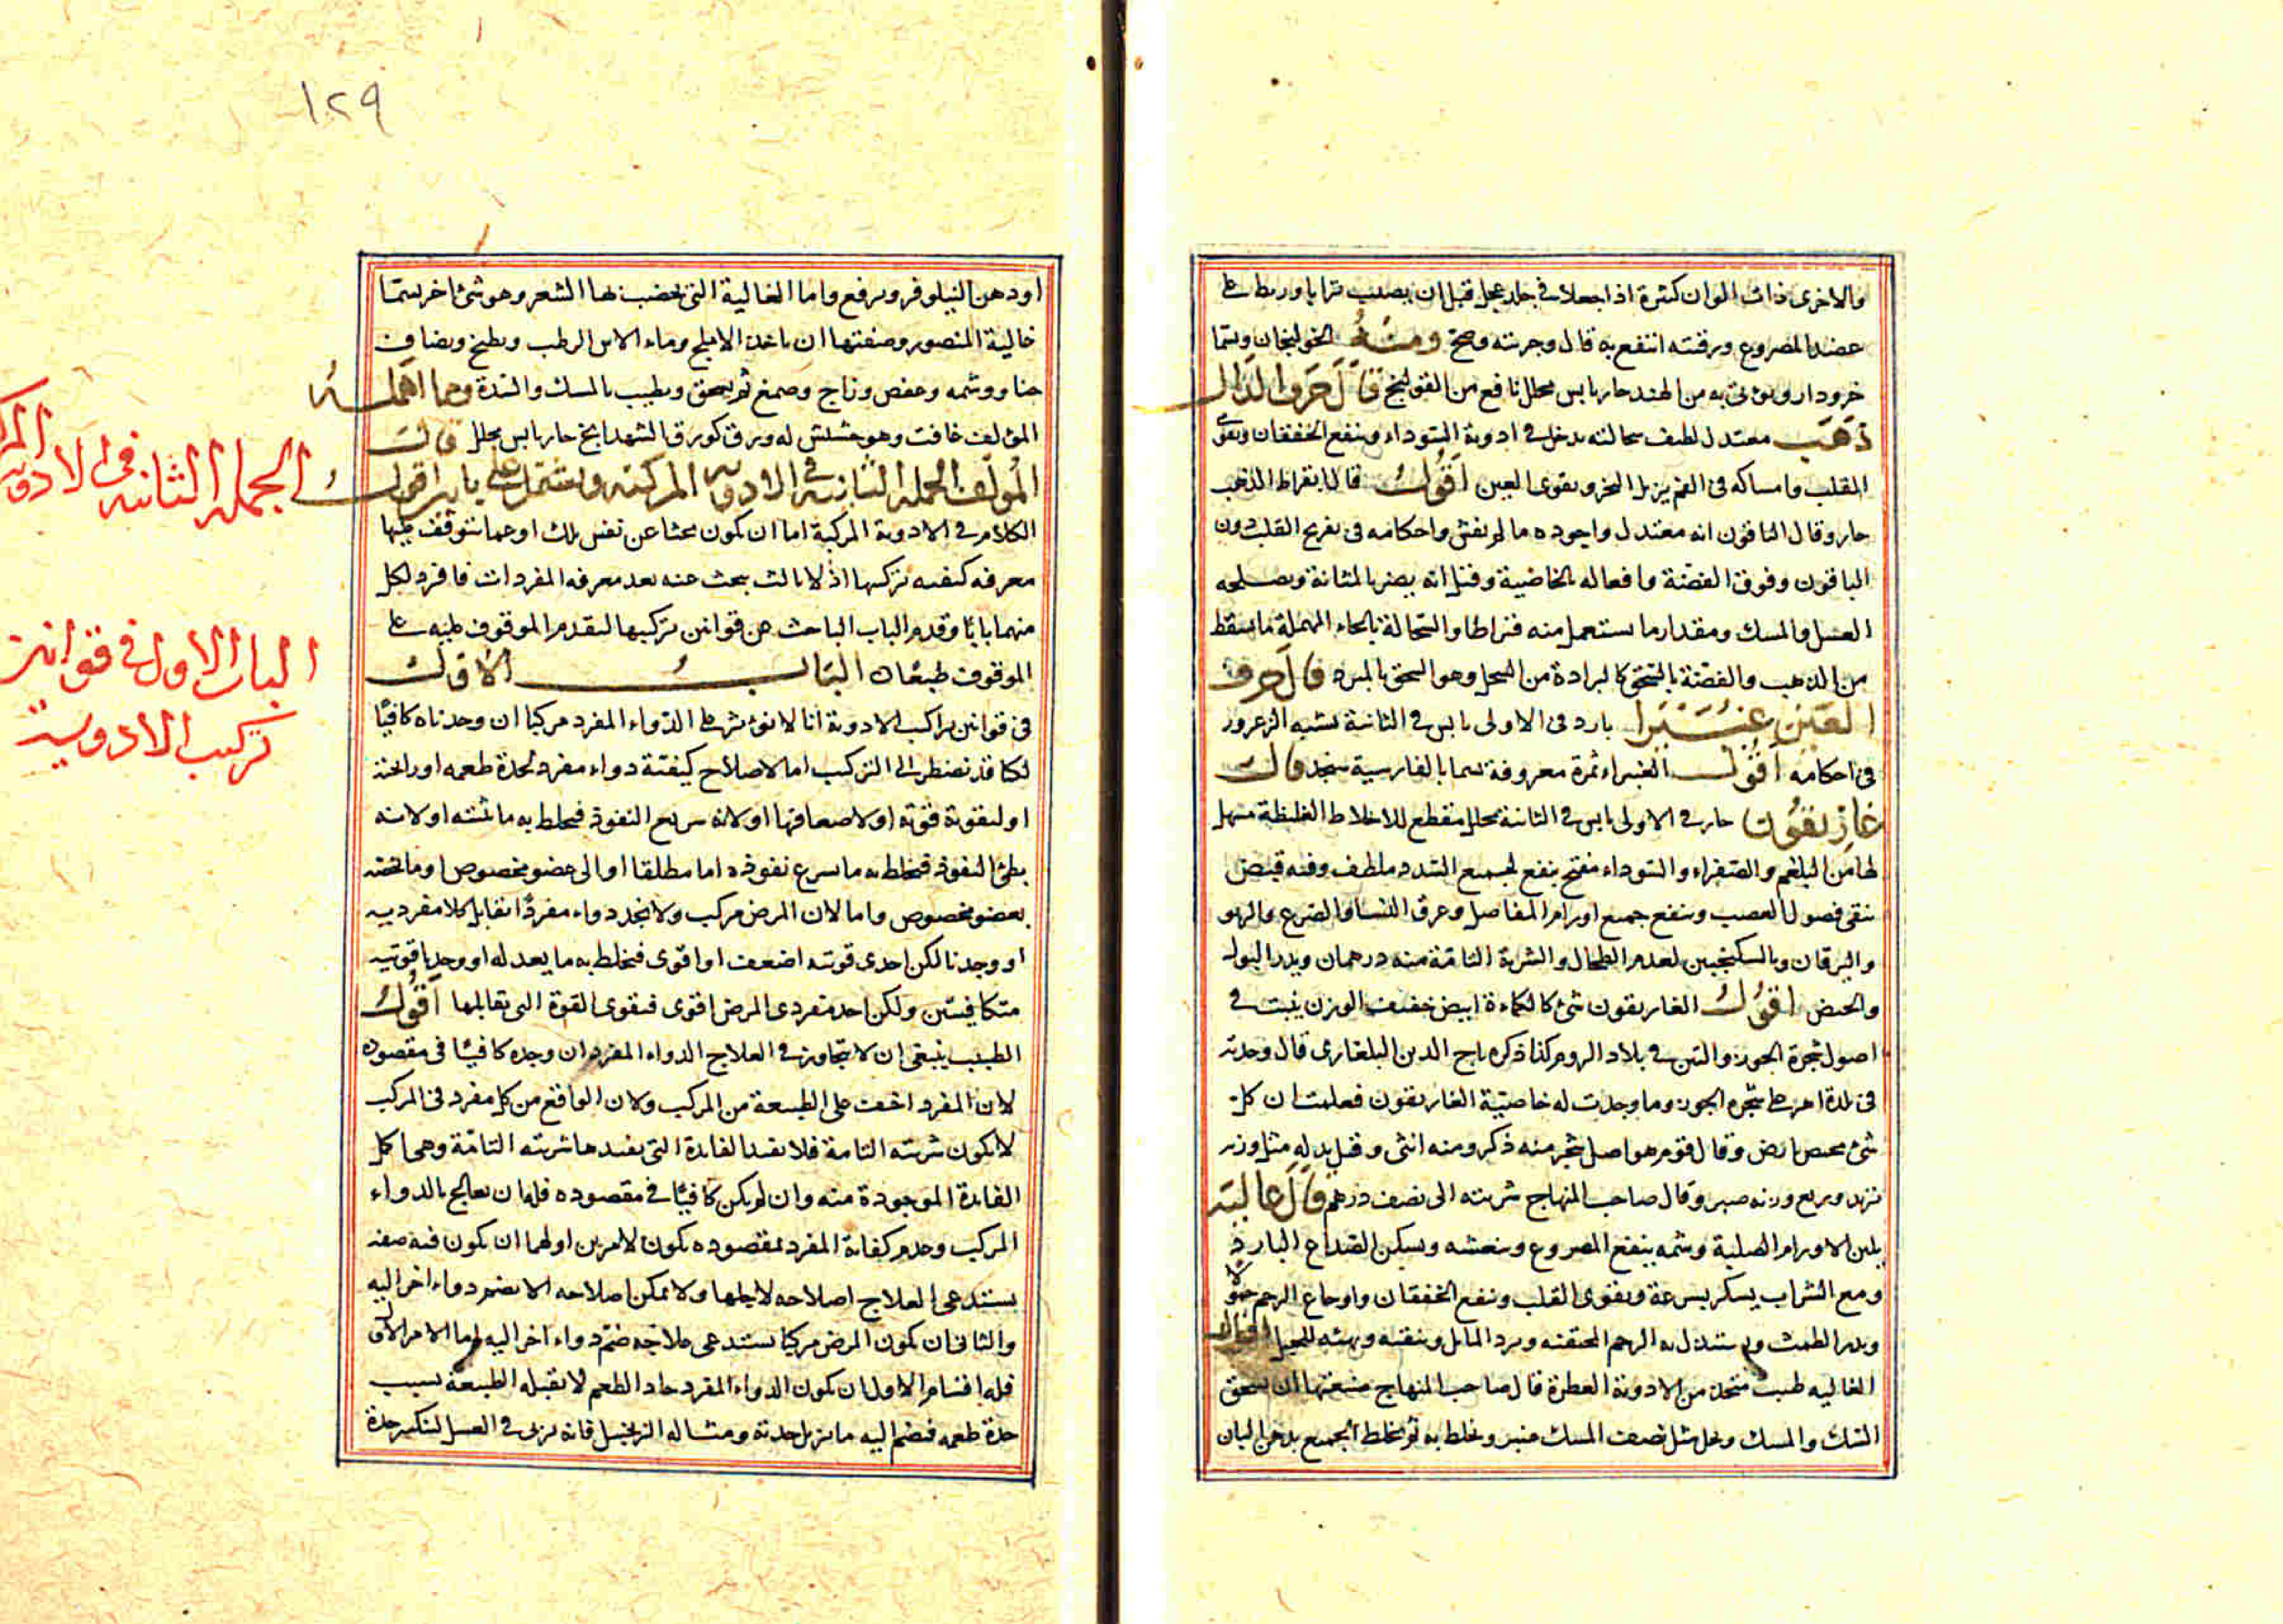 والاخرى ذات الوان كثيرة اذا جعلا في جلد عجل قبل ان يصيب ترابا وربطا على
عضد المصروع ورقبته انتفع به قال وجربته وصح ومنه الخولنجان ويسما
خرودارو يؤتى به من الهند حار يابس محلل نافع من القولنج قال حرف الذال
ذهب معتدل لطيف سحالته يدخل في ادوية السوداء وينفع الخفقان ويقوى
القلب وامساكه في الفم يزيل البخر ويقوى العين اقول قال ابقراط الذهب
حار وقال الباقون انه معتدل واجوده ما لم يغش واحكامه في تفريح القلب دون
الياقوت وفوق الفضة وافعاله بالخاصية وقيل انه يضر بالمثانة ويصلحه
العسل والمسك ومقدار ما يستعمل منه قيراط والسحالة بالحاء المهملة ما سقط
من الذهب والفضة بالسحق كالبرادة من السحل وهو السحق بالمبرد قال حرف
الغين غبيرا بارد في الاولى يابس في الثانية يشبه الزعرور
في احكامه اقول الغبيراء ثمرة معروفة يسما بالفارسية سنجد قال
غاريقون حار في الاولى يابس في الثانية محلل مقطع للاخلاط الغليظة مسهل
لها من البلغم والصفراء والسوداء مفتح ينفع لجميع السدد ملطف وفيه قبض
ينقى فضول العصب وينفع جميع اورام المفاصل وعرق النسا والصرع والربو
واليرقان وبالسكنجبين لعدم الطحال والشربة التامة منه درهمان ويدر البول
والحيض اقول الغاريقون شئ كالكماءة ابيض خفيف الوزن ينبت في
اصول شجرة الجوز والتين في بلاد الروم كذا ذكره تاج الدين البلغارى قال وجدته
في بلدة اخرى على شجرة الجوز وما وجدت له خاصية الغاريقون فعلمت ان كل
شئ مختص بارض وقال قوم هو اصل شجر منه ذكر ومنه انثى وقيل بدله مثل وزنه
تربد وربع وزنه صبر وقال صاحب المنهاج شربته الى نصف درهم قال غالية
يلين الاورام الصلبة وشمه ينفع المصروع وينعشه ويسكن الصداع البارد
ومع الشراب يسكر بسرعة ويقوى القلب وينفع الخفقان واوجاع الرحم حمولا
ويدر الطمث ويستنزل به الرحم المختنقة ويرد المايل وينقيه ويهيئه للحبل اقول
الغالية طيب متخذ من الادوية العطرة قال صاحب المنهاج صنعتها ان يسحق
السك والمسك ويحل مثل نصف المسك عنبر ويخلط به ثم يخلط الجميع بدهن البان
١٢٩
او دهن النيلوفر ويرفع واما الغالية التي يخضب بها الشعر وهو شئ اخر يسما
غالية المنصور وصنعتها ان ياخذ الاملج وماء الاس الرطب ويطبخ ويضاف
حنا ووشمه وعفص وزاج وصمغ ثم يسحق ويطيب بالمسك والندة ومما اهمله
المؤلف غافت وهو حشيش له ورق كورق الشهدانج حار يابس محلل قال
المؤلف الجملة الثانية في الادوية المركبة ويشتمل على بابين اقول
الكلام في الادوية المركبة اما ان يكون بحثا عن نفس تلك او عما يتوقف عليها
معرفة كيفية تركيبها اذ لا ثالث يبحث عنه بعد معرفة المفردات فافرد لكل
منهما بابا وقدم الباب الباحث عن قوانين تركيبها لتقدم الموقوف عليه على
الموقوف طبعا ن الباب الاول
في قوانين تراكيب الادوية انا لا نؤثر على الدواء المفرد مركبا ان وجدناه كافيا
لكنا قد نضطر الى التركيب اما لاصلاح كيفية دواء مفرد لحدة طعمه او رائحته
او لتقوية قوته او لاضعافها او لانه سريع النفوذ فيخلط به ما يثبته او لانه
بطئ النفوذ فيخلط به ما يسرع نفوذه اما مطلقا او الى عضو مخصوص او ما يخصه
بعضو مخصوص واما لان المرض مركب ولا نجد دواء مفردا يقابل كلا مفرديه
او وجدنا لكن احدى قوتيه اضعف او اقوى فيخلط به ما يعدله او وجدنا قوتيه
متكافيتين ولكن احد مفردى المرض اقوى فنقوى القوة التي تقابلها اقول
الطبيب ينبغى ان لا يتجاوز في العلاج الدواء المفرد ان وجده كافيا في مقصوده
لان المفرد اخف على الطبيعة من المركب ولان الواقع من كل مفرد في المركب
لا يكون شربته التامة فلا يفيد الفايدة التي يفيدها شربته التامة وهى كل
الفايدة الموجودة منه وان لم يكن كافيا في مقصوده فله ان يعالج بالدواء
المركب وعدم كفاية المفرد بمقصوده يكون لامرين اولهما ان يكون فيه صفة
يستدعى العلاج اصلاحه لاجلها ولا يمكن اصلاحه الا بضم دواء اخر اليه
والثاني ان يكون المرض مركبا يستدعى علاجه ضم دواء اخر اليه اما الامر الاول
فله اقسام الاول ان يكون الدواء المفرد حاد الطعم لا تقبله الطبيعة بسبب
حدة طعمه فيضم اليه ما يزيل حدته ومثاله الزنجبيل فانه يربى في العسل لتنكسر حدة
الجملة الثانية في الادوية
الباب الاول في قوانين
تركيب الادوية